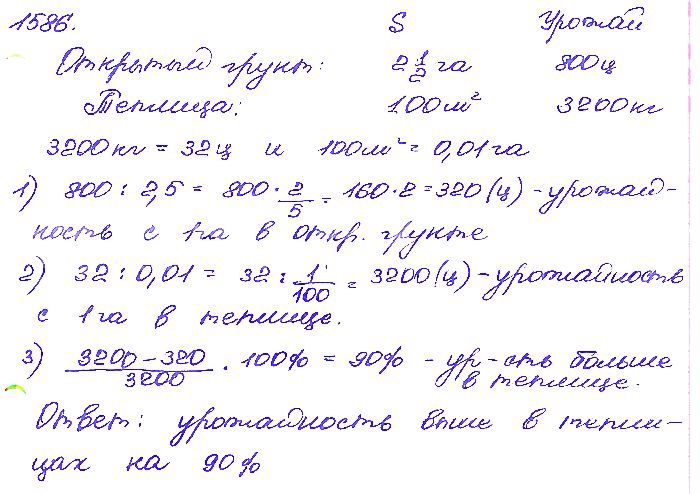 1586. S Урожай
Открытый грунт: 2 1/2 га 800ц
Теплица: 100м² 3200кг
3200кг = 32ц и 100м² = 0,01га
1) 800 : 2,5 = 800 · 2/5 = 160·2 = 320 (ц) - урожай-
ность с 1га в откр. грунте
2) 32 : 0,01 = 32 : 1/100 = 3200 (ц) - урожайность
с 1га в теплице.
3) (3200 – 320)/3200 · 100% = 90% - ур-сть больше
в теплице.
Ответ: урожайность выше в тепли-
цах на 90%